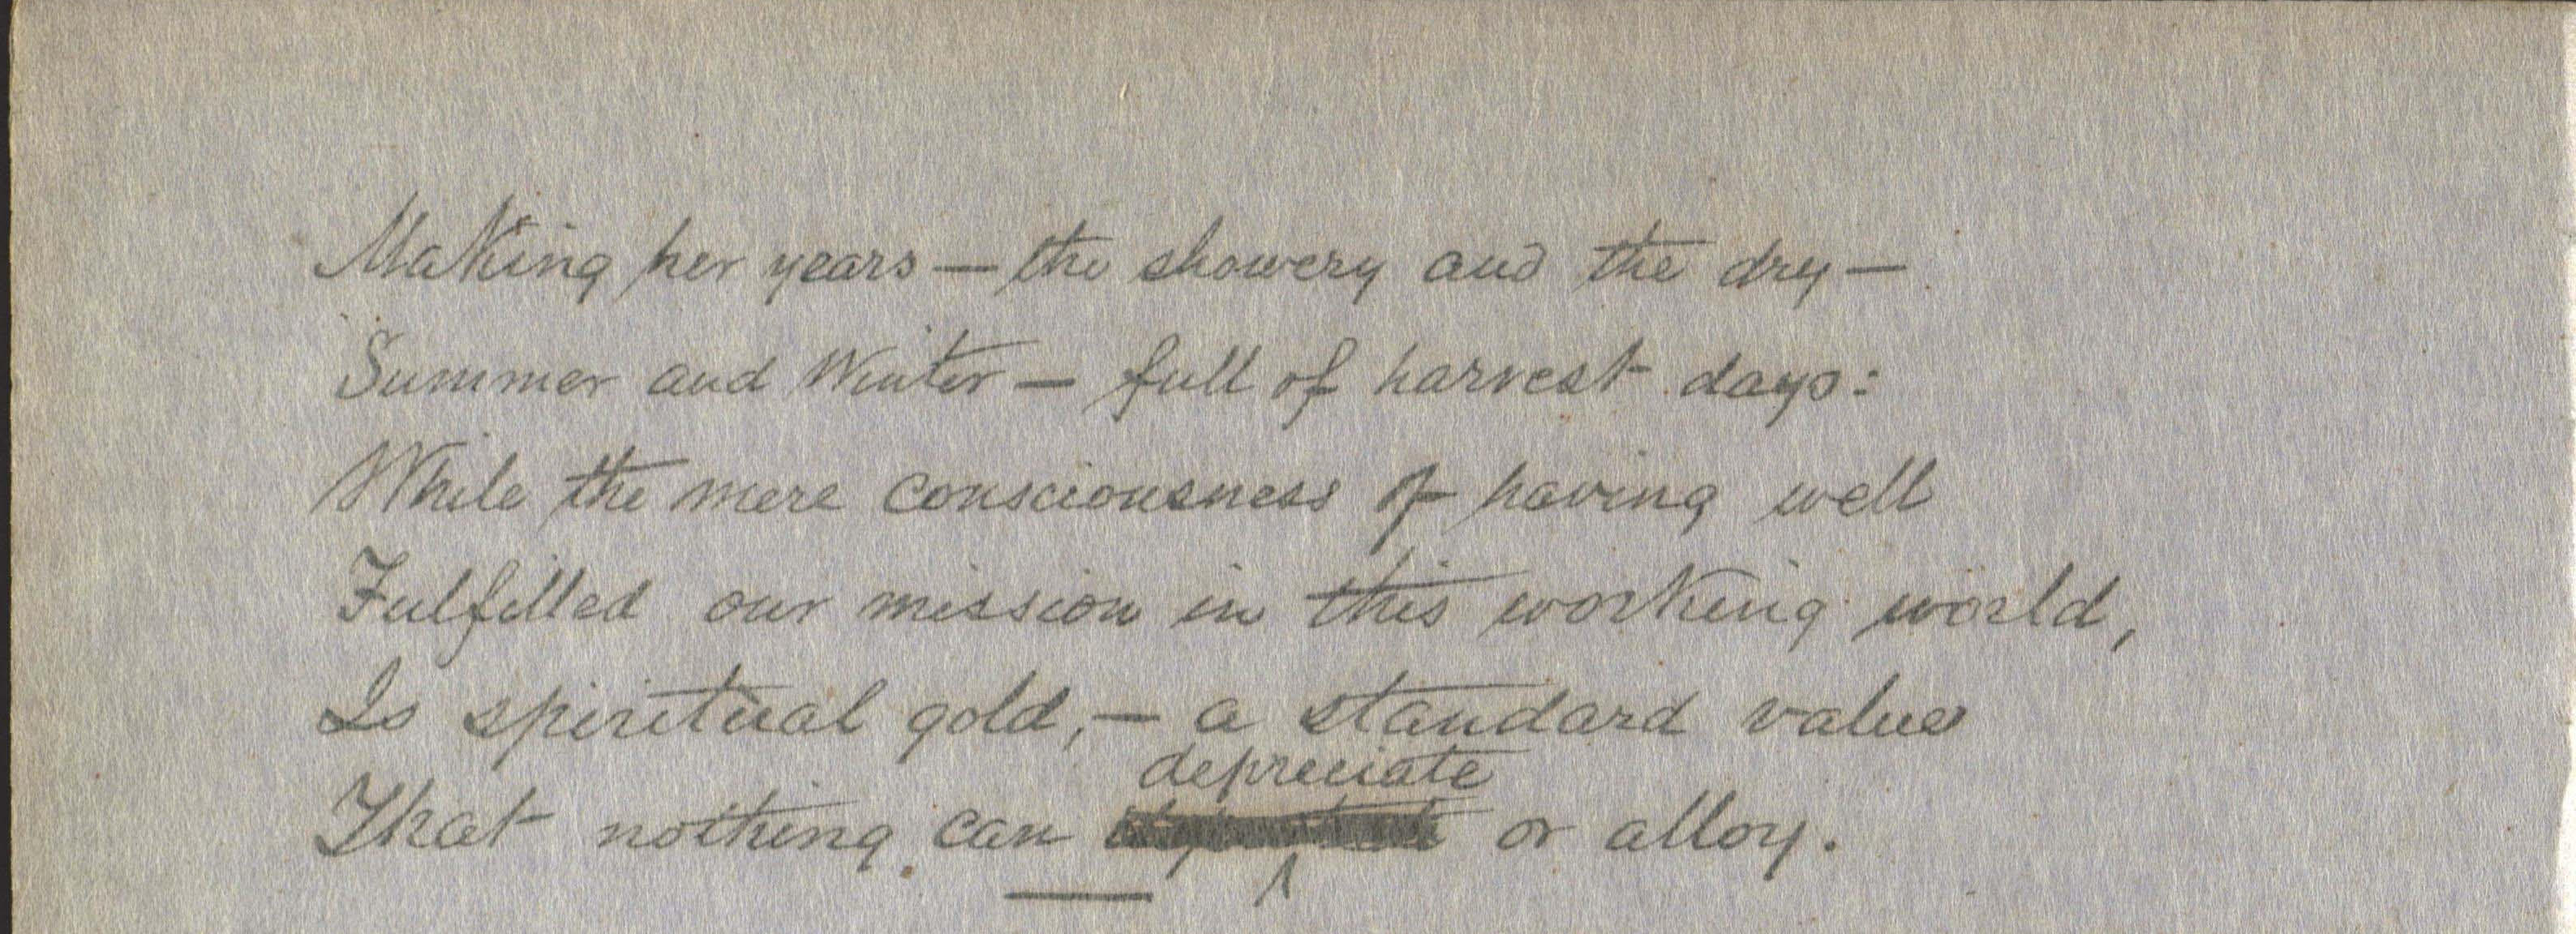 Making her years — the showery and the dry —
Summer and Winter — full of harvest days:
While the mere consciousness of having well
Fulfilled our mission in this working world,
Is spiritual gold, — a standard value
depreciate
That nothing can or alloy.